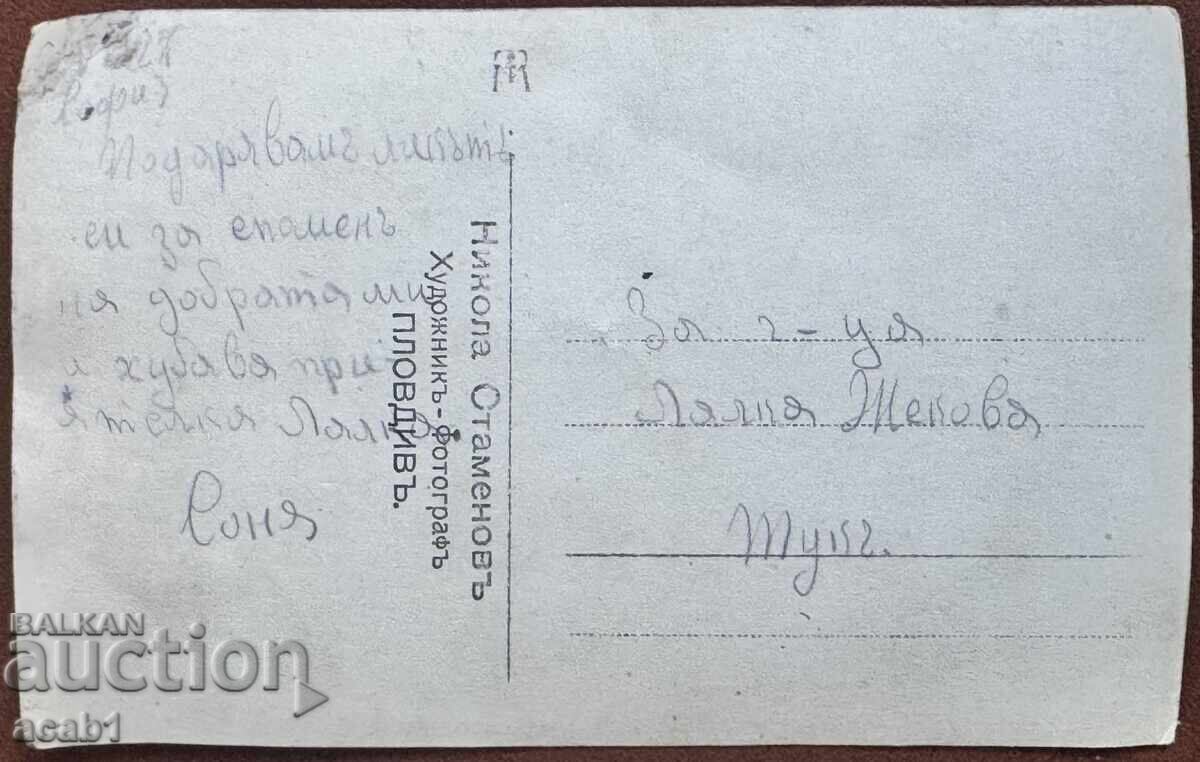 27
Подарявамъ ликътъ
си за споменъ
на добрата ми
и хубава при-
ятелка Лялка
Соня
Никола Стаменовъ
Художникъ-Фотографъ
ПЛОВДИВЪ.
За г-ца
Лялка Жекова
Тукъ.
BALKAN
auction
acab1